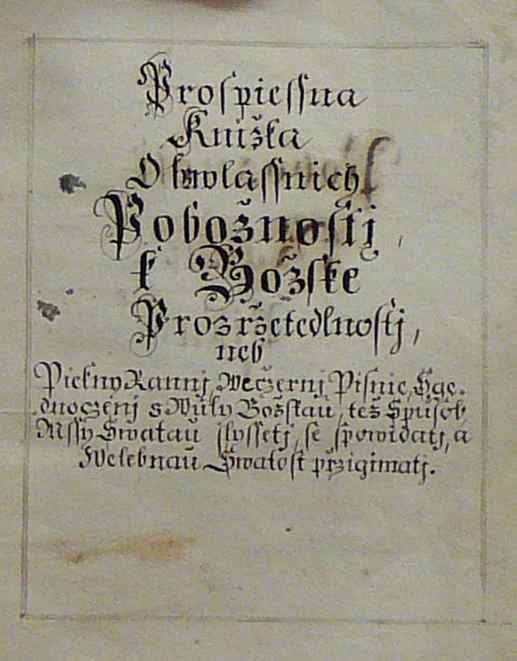 Prospiessna
Knižka
O zwlassnich
Pobožnostj
k Božske
Prozržetedlnostj,
neb
Piekny Rannj, Weczernj Pisnie, Sge-
dnoczenj s Wuly Božskau, též Spusob
Mssy Swatau slyssetj, se spowidatj, a
Welebnau Swatost przigimatj.